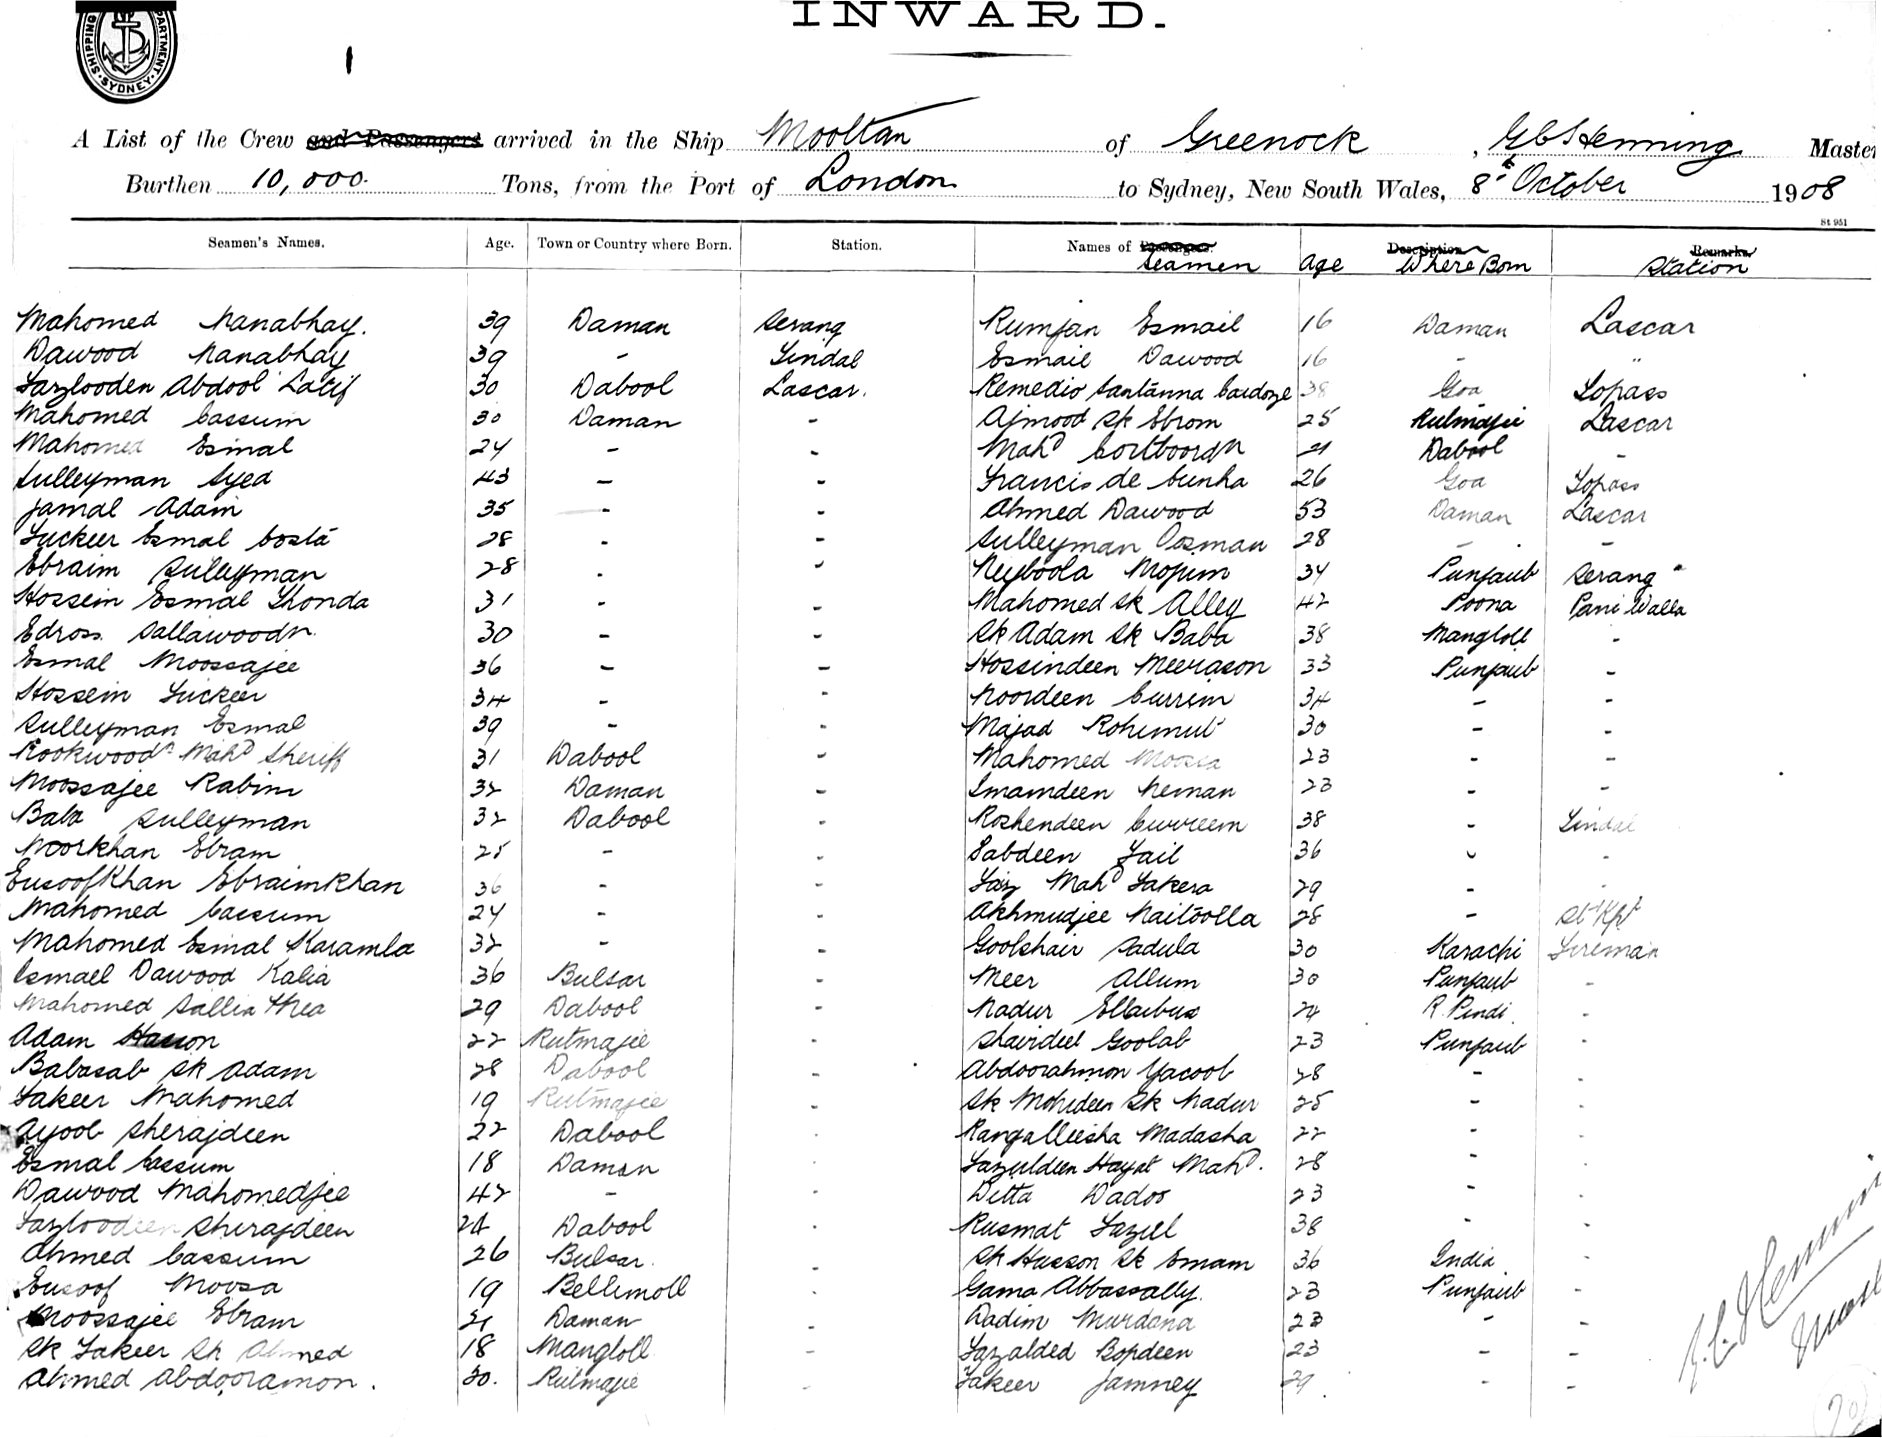 INWARD.
SHIPPING DEPARTMENT SYDNEY
1
A List of the Crew and Passengers arrived in the Ship Mooltan of Greenock, G C Henning Master
Burthen 10,000. Tons, from the Port of London to Sydney, New South Wales, 8th October 1908
St 951
Seamen's Names. Age. Town or Country where Born. Station. Names of Passengers. Seamen Age Description Where Born Remarks Station
Mahomed Nanabhay. 39 Daman Serang Rumjan Esmail 16 Daman Lascar
Dawood Nanabhay 39 - Tindal Esmail Dawood 16 - "
Fazlooden Abdool Latif 30 Dabool Lascar. Remedio Santanna Cardoze 38 Goa Topass
Mahomed Cassum 30 Daman - Ajmood Sk Ebrom 25 Rutmajie Lascar
Mahomed Esmal 24 - - Mahd 21 Dabool -
Sulleyman Syed 43 - - Francis de Cunha 26 Goa Topass
Jamal Adam 35 - - Ahmed Dawood 53 Daman Lascar
Fuckeer Esmal Costa 28 - - Sulleyman Oosman 28 - -
Ebraim Sulleyman 28 - - Neyboola Mojum 34 Punjaub Serang
Hossein Esmal Thonda 31 - - Mahomed Sk Alley 42 Poona Pani Walla
Edross Sallawoodn 30 - - Sk Adam Sk Baba 38 Mangloll -
Esmal Moossajee 36 - - Hossindeen Meerason 33 Punjaub -
Hossein Fuckeer 34 - - Noordeen Currim 34 - -
Sulleyman Esmal 39 - - Majad Rohimut 30 - -
Rookwoodn Mahd Sheriff 31 Dabool - Mahomed Moossa 23 - -
Moossajee Rabim 32 Daman - Imamdeen Neman 23 - -
Baba Sulleyman 32 Dabool - Roshendeen Curreem 38 - Tindal
Noorkhan Ebram 25 - - Sabdeen Fail 36 - -
Eusoofkhan Ebraimkhan 36 - - Faiz Mahd Fakera 29 - -
Mahomed Cassum 24 - - Akhmudjee Naitoolla 28 - St Kpr
Mahomed Esmal Karamla 32 - - Goolshair Sadula 30 Karachi Fireman
Esmael Dawood Kalia 36 Bulsar - Meer Allum 30 Punjaub -
Mahomed Sallia 29 Dabool - Nadur Ellaibux 24 R. Pindi. -
Adam Hasson 22 Rutmajie - Shairdil Goolab 23 Punjaub -
Babasab Sk Adam 28 Dabool - Abdoorahmon Yacoob 28 - -
Fakeer Mahomed 19 Rutmajie - Sk Mohideen Sk Nadur 25 - -
Ayoob Sherajdeen 22 Dabool - Rangalleesha Madasha 22 - -
Esmal Cassum 18 Daman - Fazuldeen Hayat Mahd. 28 - -
Dawood Mahomedjee 42 - - Ditta Dados 23 - -
Fazloodeen Sherajdeen 24 Dabool - Rusmat Fazul 38 - -
Ahmed Cassum 26 Bulsar - Sk Husson Sk Emam 36 India -
Eusoof Moosa 19 Bellimoll - Gama Abbassally. 23 Punjaub -
Moossajee Ebram 21 Daman - Dadim Murdana 23 - -
Sk Fakeer Sk Ahmed 18 Mangloll - Fazalded Bopdeen 23 - -
Ahmed Abdooramon. 30. Rutmajie - Fakeer Jamney 29 - -
G. C. Henning
Mast